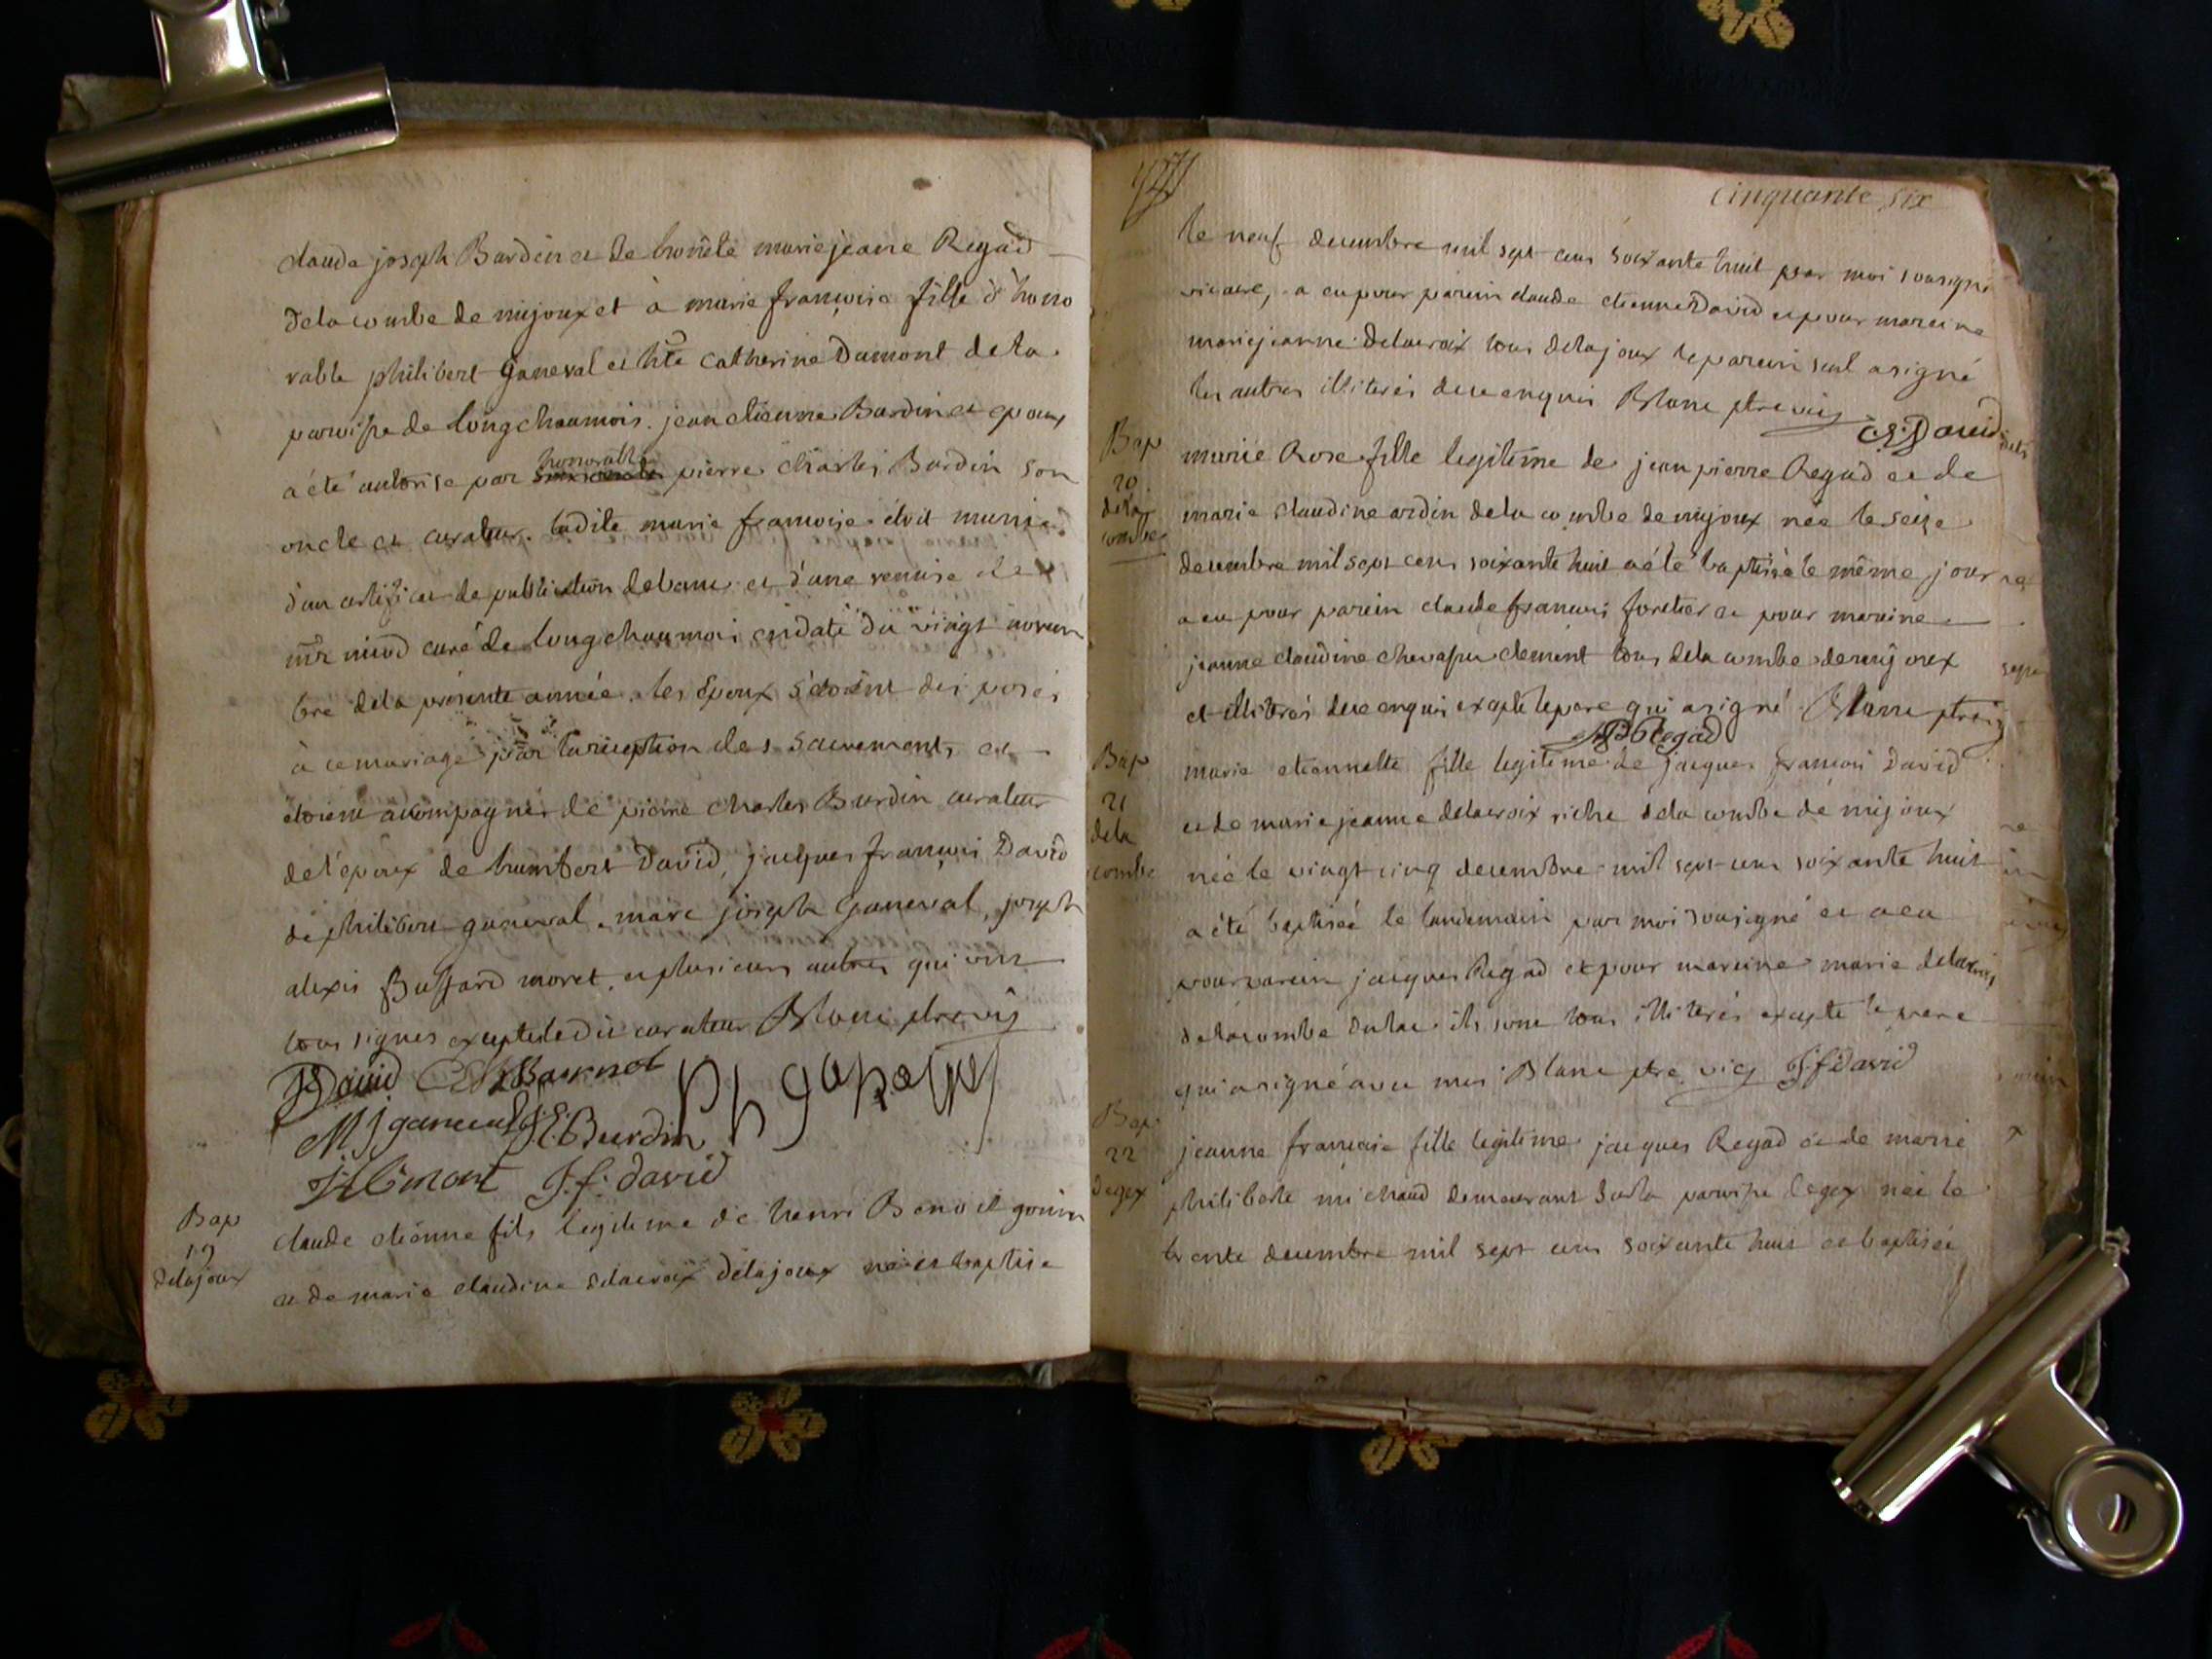 claude joseph Burdin et de honête marie jeane Regad
dela combe de mijoux et à marie françoise fille d'hono
rable philibert Ganeval et hte Catherine Dumont de la
paroisse de longchaumois. jean etienne Burdin et epoux
a été autorise par honorable pierre charles Burdin son
oncle et curateur. ladite marie francoise etoit munie
d'un certificat de publication de bans et d'une remise de
mr miod curé de longchaumois en date du vingt novem
bre dela présente année. les Epoux s'etoient disposés
à ce mariage par la reception des sacrements et
etoient acompagnés de pierre charles Burdin curateur
de l'epoux de humbert David, jacques françois David
de philibert ganeval, marc joseph Ganeval, joseph
alexis Buffard moret, et plusieurs autres qui ont
tous signés excepté ledit curateur Blanc ptre vic
David
M. J ganeval J. E. Burdin
J. f. David
Bap
19
delajoux
claude etienne fils legitime de henri Benoit gouin
et de marie claudine delacroix delajoux né et baptise
Cinquante six
le neuf decembre mil sept cens soixante huit par moi sousigné
vicaire, a eu pour parein claude etienne David et pour mareine
marie jeanne Delacroix tous delajoux le parein seul a signé
les autres illiterés de ce enquis Blanc ptre vic
C. E. David
Bap
20
dela
combe
marie Rose fille legitime de jean pierre Regad et de
marie claudine ardin dela combe de mijoux née le seize
decembre mil sept cens soixante huit a été baptisé le même jour
a eu pour parein claude francois foretier et pour mareine
jeanne claudine chevassu clement tous dela combe de mijoux
et illiterés de ce enquis excepté le pere qui a signé Blanc ptre vic
J P Regad
Bap
21
dela
combe
marie etiennette fille legitime de jacques francois David
et de marie jeanne delacroix riche dela combe de mijoux
née le vingt cinq decembre mil sept cens soixante huit
a été baptisée le landemain par moi sousigné et a eu
pour parein jacques Regad et pour mareine marie delacroix
dela combe du lac ils sont tous illiterés excepte le pere
qui a signé avec moi Blanc ptre vic J. f. David
Bap
22
degex
jeanne francoise fille legitime jacques Regad et de marie
philiberte michaud demeurant sur la paroisse de gex née le
trente decembre mil sept cens soixante huit et baptisée